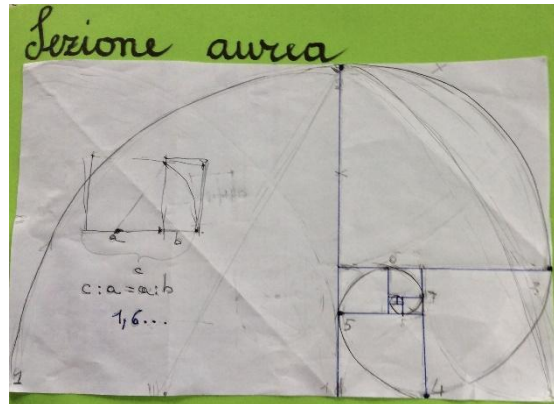 Sezione aurea
a b
c
c:a=a:b
1,6...
1
3
4
5
6
7